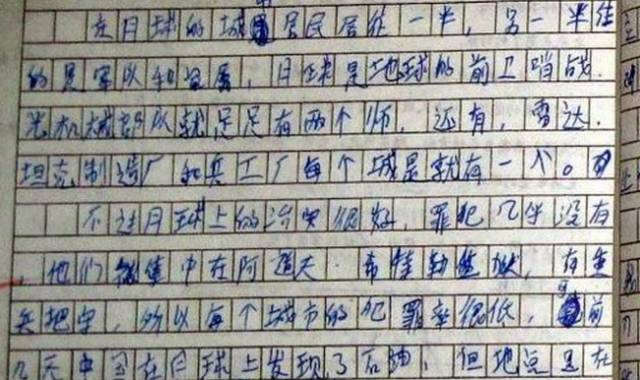 在月球的城中居民居住一半，另一半住
的是军队和家属，月球是地球的前卫哨战.
光机械部队就足足有两个师，还有，雷达.
坦克制造厂和兵工厂每个城是就有一个。
不过月球上的治安很好，罪犯几乎没有
，他们集中在阿道夫·希特勒监狱，有重
兵把守，所以每个城市的犯罪率很低，前
几天中国在月球上发现了石油，但地点是在